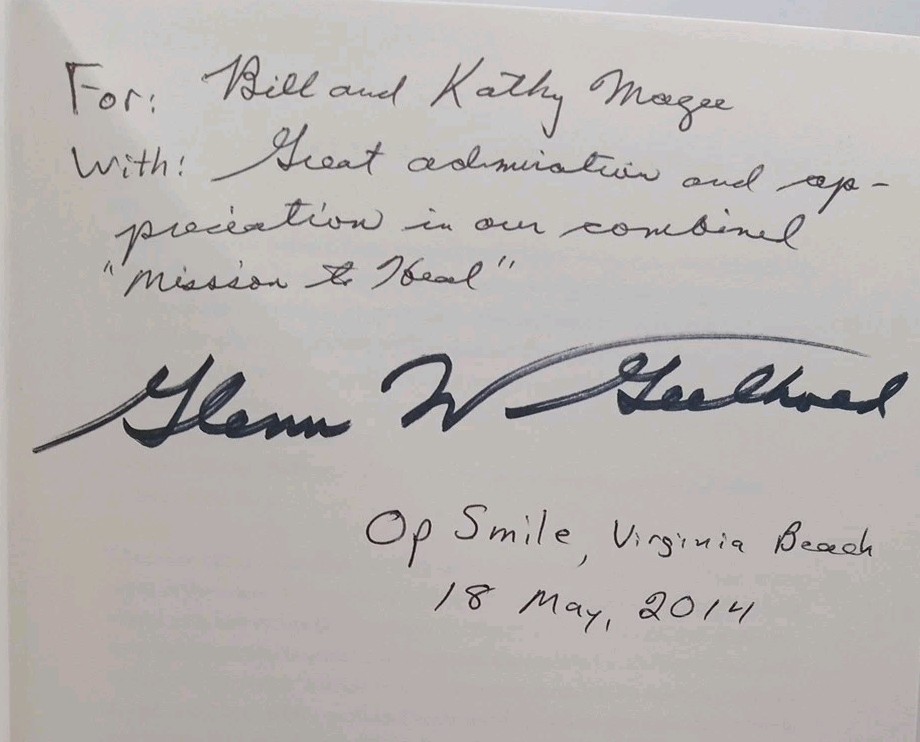 For: Bill and Kathy Magee
With: Great admiration and ap-
preciation in our combined
"Mission to Heal"
Glenn W Geelhoed
Op Smile, Virginia Beach
18 May, 2014